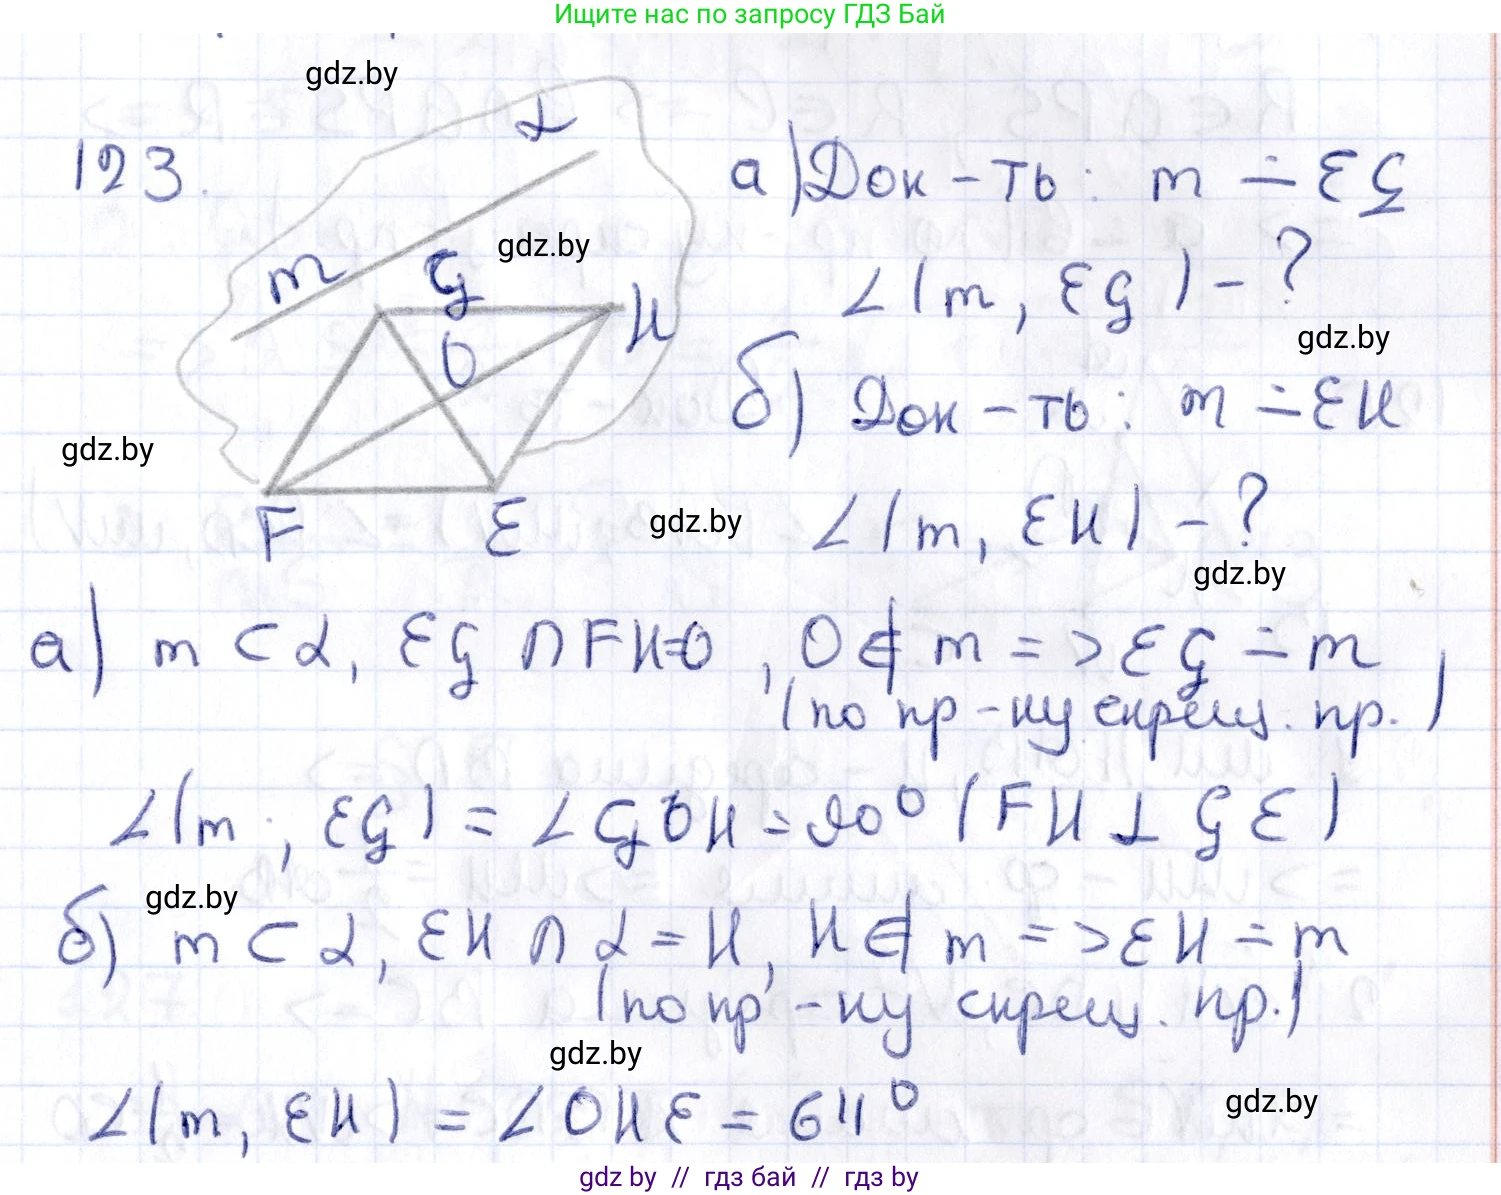 Ищите нас по запросу ГДЗ Бай
gdz.by
123.
α
m
G
gdz.by
H
O
F
E
gdz.by
а) Док-ть: m ∸ EG
∠(m, EG) - ?
gdz.by
б) Док-ть: m ∸ EH
gdz.by
∠(m, EH) - ?
gdz.by
а) m ⊂ α, EG ∩ FH=O, O ∉ m => EG ∸ m,
(по пр-ку скрещ. пр.)
∠(m; EG) = ∠GOH = 90° (FH ⊥ GE)
gdz.by
б) m ⊂ α, EH ∩ α = H, H ∉ m => EH ∸ m
(по пр-ку скрещ. пр.)
gdz.by
∠(m, EH) = ∠OHE = 64°
gdz.by
gdz by // гдз бай // гдз by